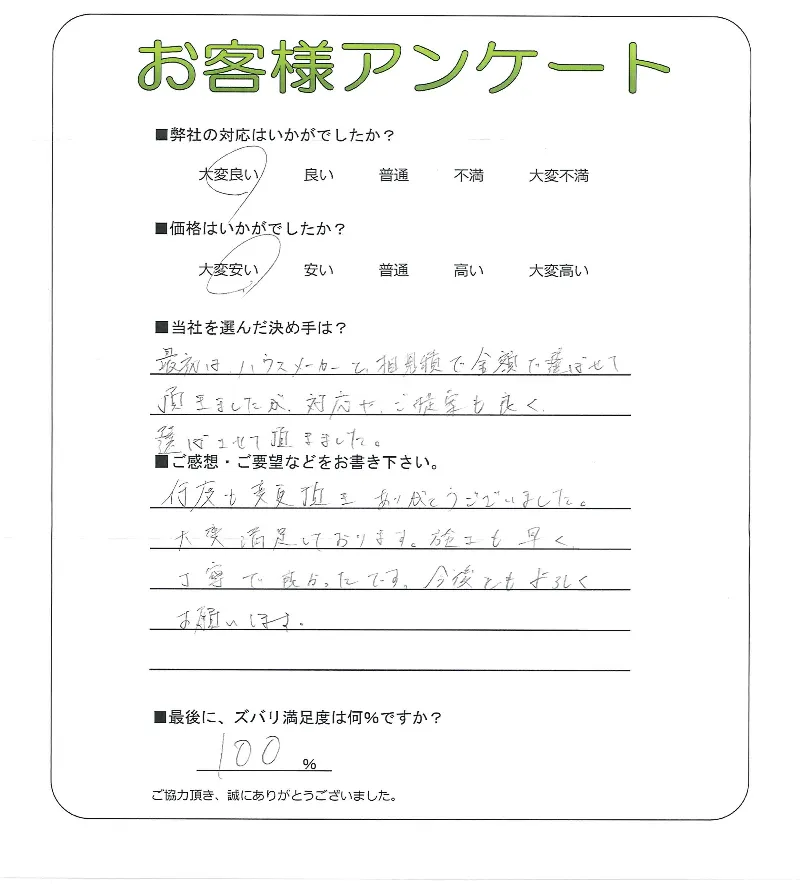 お客様アンケート
■弊社の対応はいかがでしたか？
大変良い 良い 普通 不満 大変不満
■価格はいかがでしたか？
大変安い 安い 普通 高い 大変高い
■当社を選んだ決め手は？
最初は、ハウスメーカーと、相見積で金額で選ばせて
頂きましたが、対応や、ご提案も良く、
選ばせて頂きました。
■ご感想・ご要望などをお書き下さい。
何度も変更頂き ありがとうございました。
大変満足しております。施工も早く、
丁寧で良かったです。今後ともよろしく
お願いします。
■最後に、ズバリ満足度は何％ですか？
100 %
ご協力頂き、誠にありがとうございました。